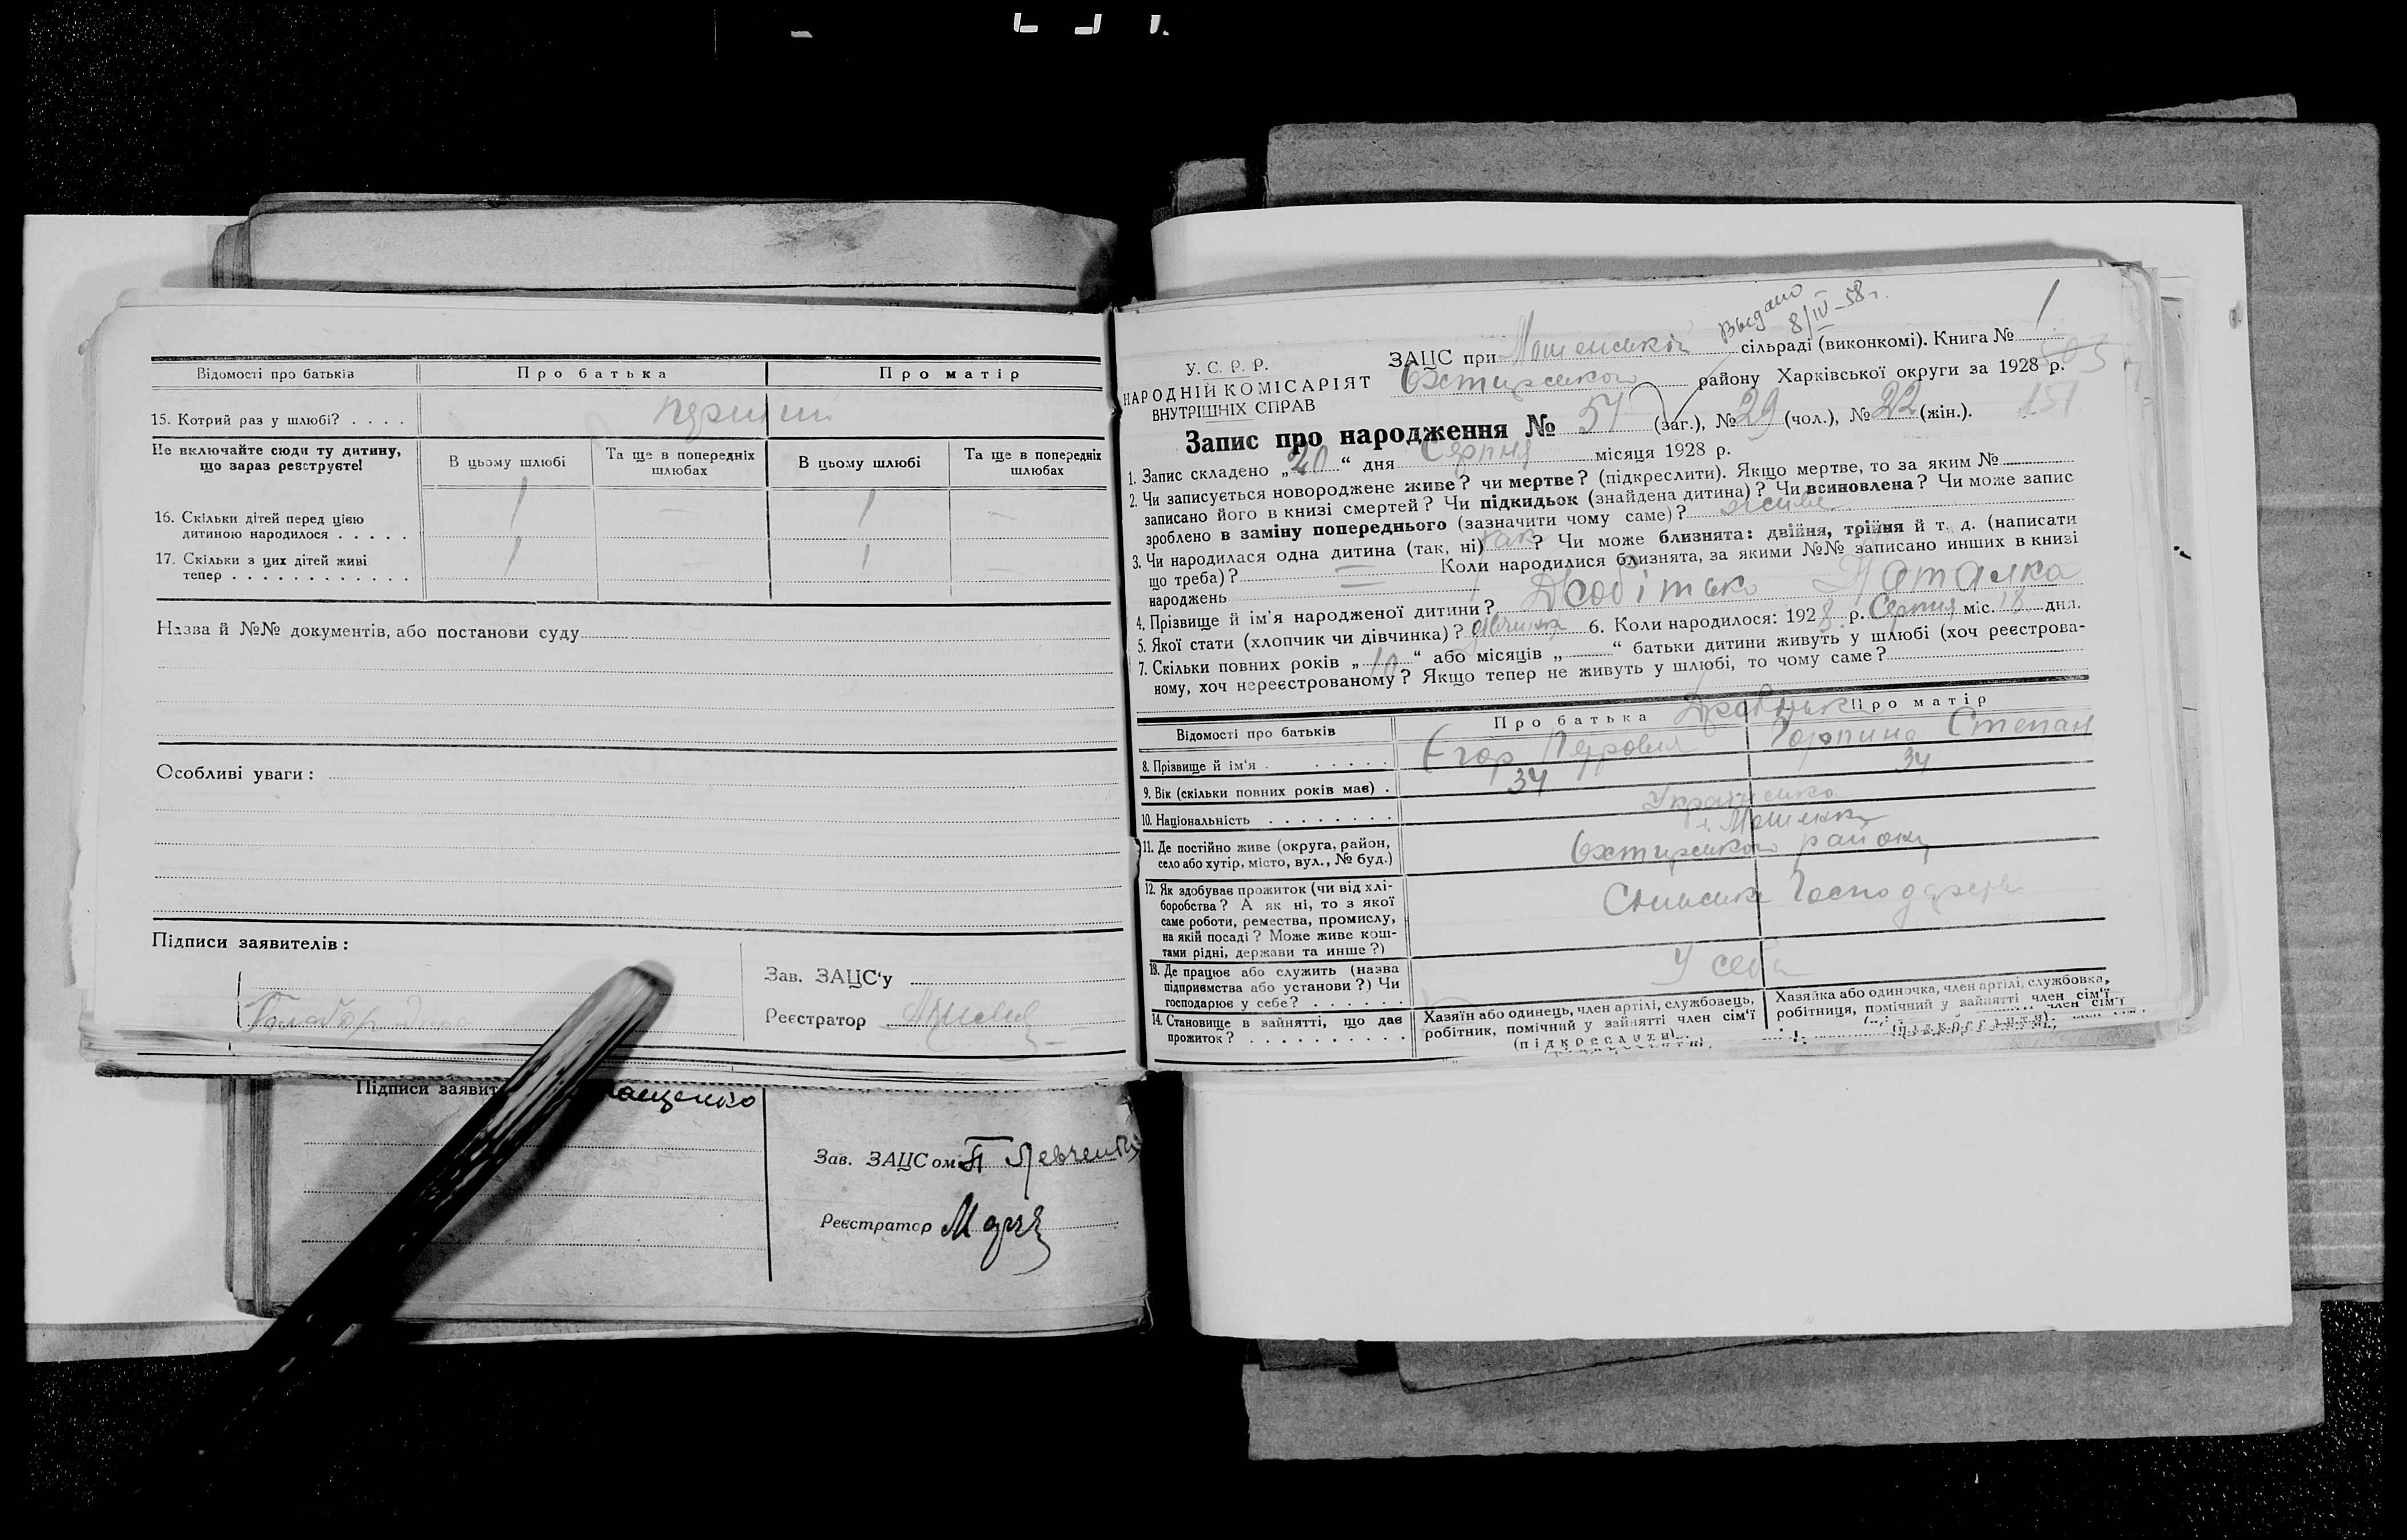 Відомості про батьків
Про батька
Про матір
15. Котрий раз у шлюбі? . . . .
перший
Не включайте сюди ту дитину,
що зараз реєструєте!
В цьому шлюбі
Та ще в попередніх
шлюбах
В цьому шлюбі
Та ще в попередніх
шлюбах
16. Скільки дітей перед цією
дитиною народилося . . . . .
1 — 1 —
17. Скільки з цих дітей живі
тепер . . . . . . . . . . . .
1 — 1 —
Назва й №№ документів, або постанови суду
Особливі уваги :
Підписи заявителів :
Зав. ЗАЦС‘у
Реєстратор
Підписи заявит
Зав. ЗАЦСом П Левченко
Реєстратор
У. С. Р. Р.
НАРОДНІЙ КОМІСАРІЯТ
ВНУТРІШНІХ СПРАВ
Выдано
8/IV-58г.
ЗАЦС при Мошенській сільраді (виконкомі). Книга № 1
Охтирського району Харківської округи за 1928 р.
151
Запис про народження № 51 (заг.), № 29 (чол.), № 22 (жін.).
1. Запис складено „20“ дня Серпня місяця 1928 р.
2. Чи записується новороджене живе? чи мертве? (підкреслити). Якщо мертве, то за яким №
записано його в книзі смертей? Чи підкидьок (знайдена дитина)? Чи всиновлена? Чи може запис
зроблено в заміну попереднього (зазначити чому саме)? живе
3. Чи народилася одна дитина (так, ні) так ? Чи може близнята: двійня, трійня й т. д. (написати
що треба)? Коли народилися близнята, за якими №№ записано инших в книзі
народжень
4. Прізвище й ім‘я народженої дитини? Дробітько Наталка
5. Якої стати (хлопчик чи дівчинка)? дівчинка 6. Коли народилося: 1928 р. Серпня міс. 18 дня.
7. Скільки повних років „10“ або місяців „—“ батьки дитини живуть у шлюбі (хоч реєстрова-
ному, хоч нереєстрованому? Якщо тепер не живуть у шлюбі, то чому саме?
Відомості про батьків
Про батька
Про матір
Дробітько
8. Прізвище й ім‘я . . . . . .
Єгор Петрович
Горпина Степан
9. Вік (скільки повних років має) .
34
34
10. Національність . . . . . . . .
Українська
11. Де постійно живе (округа, район,
село або хутір, місто, вул., № буд.)
Охтирського району
12. Як здобуває прожиток (чи від хлі-
боробства? А як ні, то з якої
саме роботи, ремества, промислу,
на якій посаді? Може живе кош-
тами рідні, держави та инше?)
Сільське Господарство
13. Де працює або служить (назва
підприємства або установи?) Чи
господарює у себе? . . . . . .
У себе
14. Становище в зайнятті, що дає
прожиток? . . . . . . . . . .
Хазяїн або одинець, член артілі, службовець,
робітник, помічний у зайнятті член сім‘ї
(підкреслити).
Хазяйка або одиночка, член артілі, службовка,
робітниця, помічний у зайнятті член сім‘ї
(підкреслити).